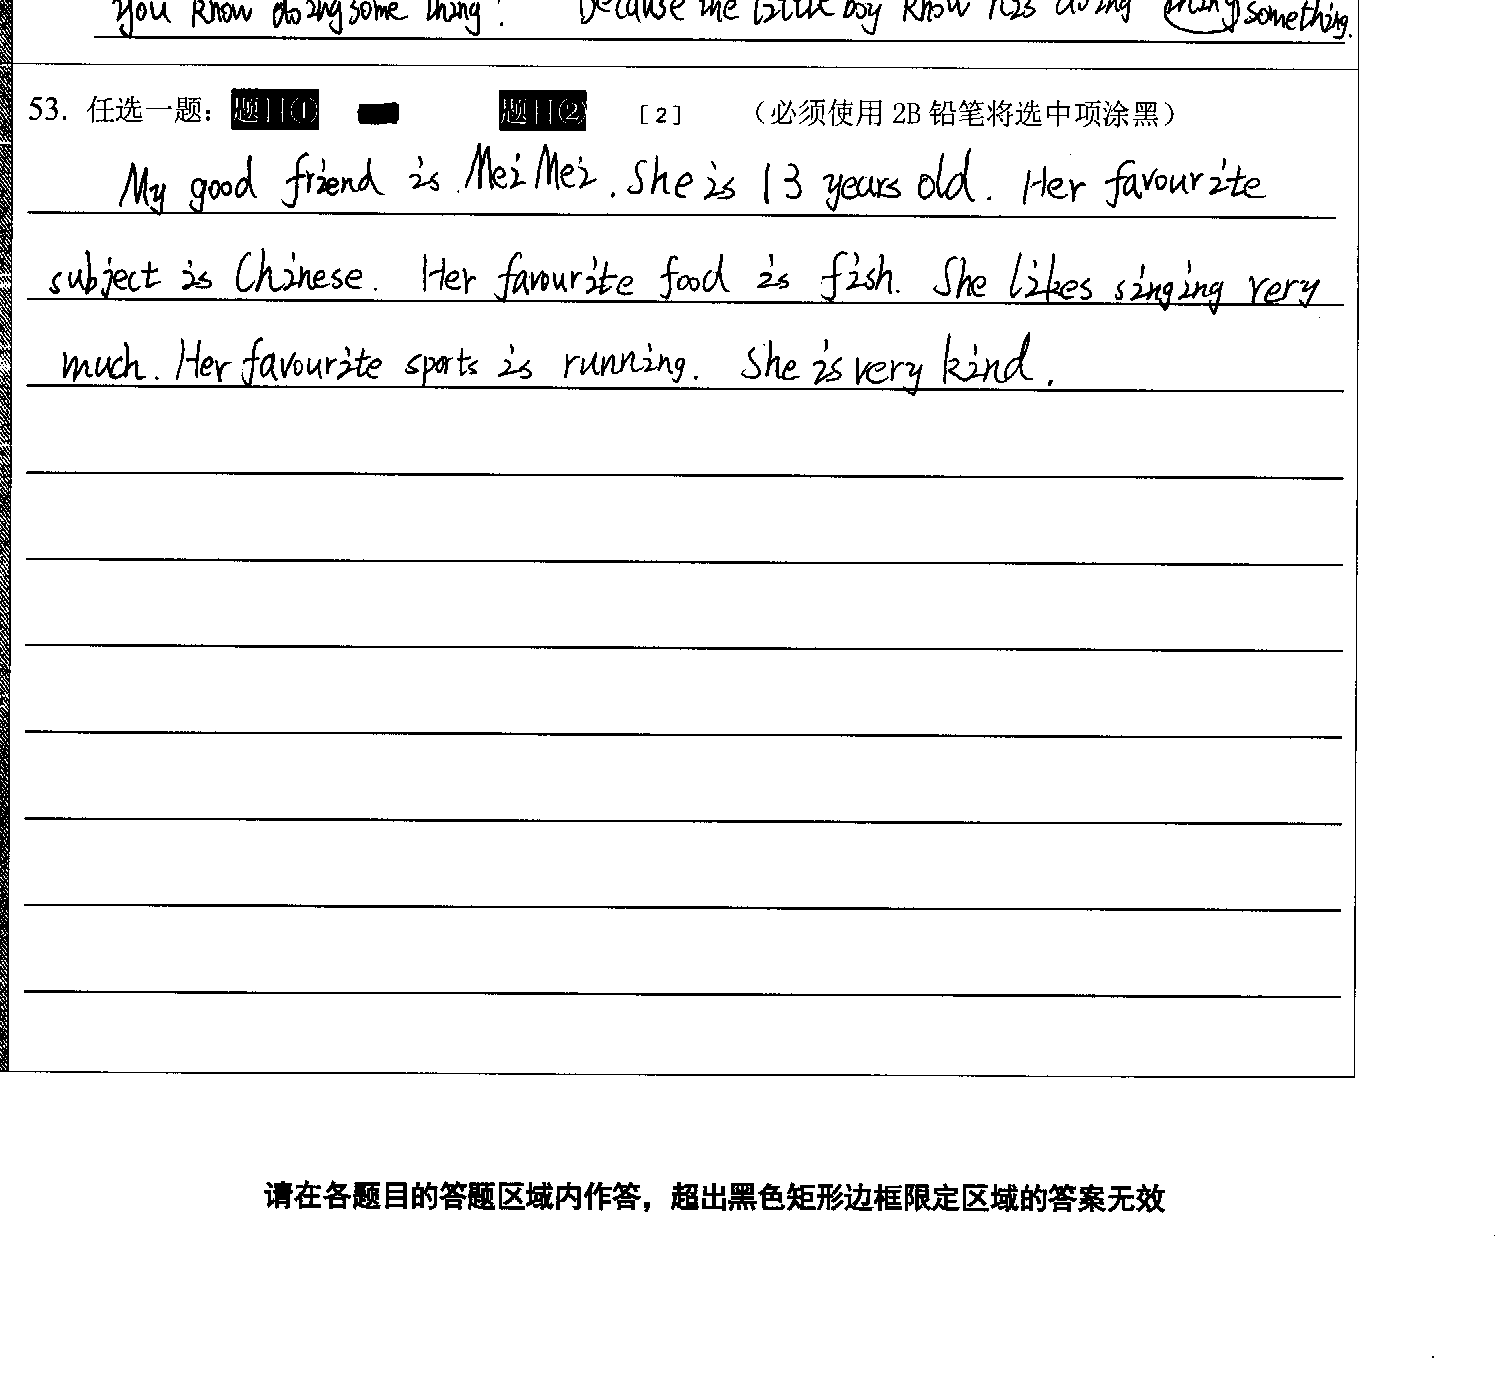 you know doing some thing? Because the little boy know his doing something.
53. 任选一题： 题目① 题目② [2] （必须使用 2B 铅笔将选中项涂黑）
My good friend is Mei Mei. She is 13 years old. Her favourite
subject is Chinese. Her favourite food is fish. She likes singing very
much. Her favourite sports is running. She is very kind.
请在各题目的答题区域内作答，超出黑色矩形边框限定区域的答案无效